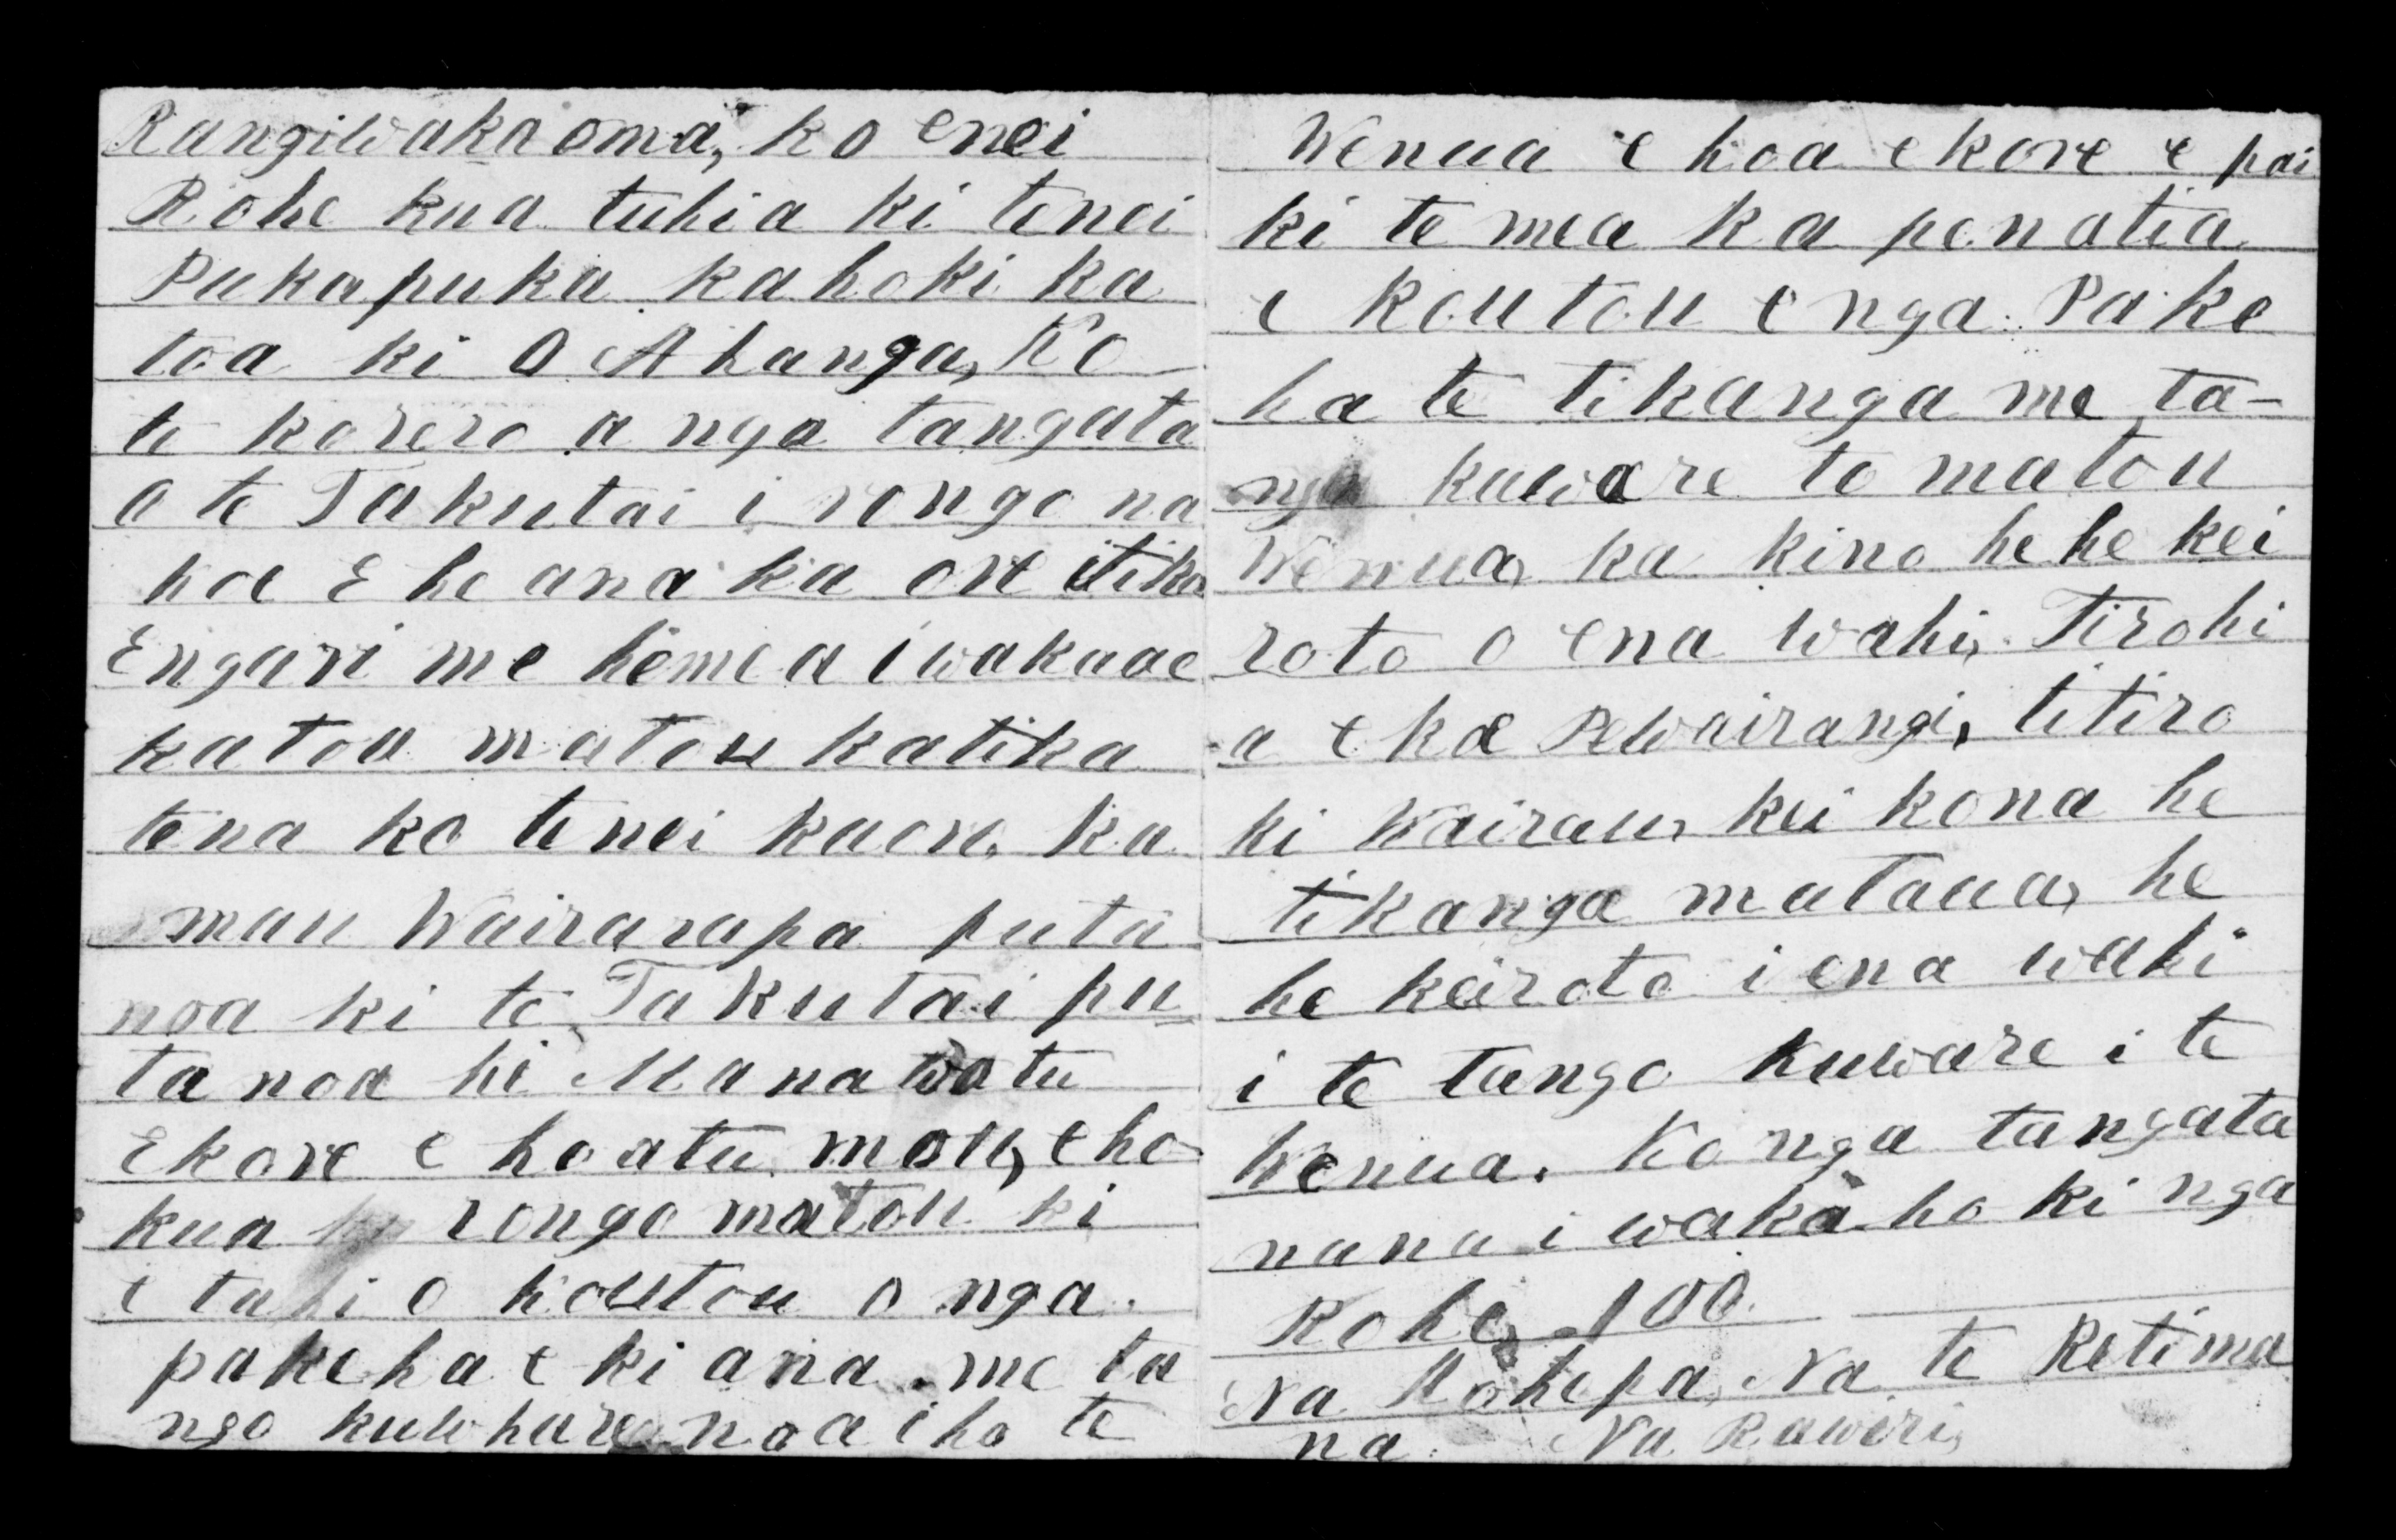 Rangiwakaoma, ko enei
Rohe kua tuhia ki tenei
Pukapuka ka hoki ka
toa ki O Ahanga, Ko
te korero a nga tangata
o te Takutai i rongo na
hoa E he ana ka ore itika
Engari me hemea i wakaae
katoa matou katika
tena ko tenei kaore, ka
mau Wairarapa puta
noa ki te Takutai pu
ta noa ki Manawatu
Ekore e hoatu mou, e ho
kua rongo matou ki
e tahi o koutou o nga
pakeha e ki ana me ta
ngo kuwhare noa iho te
Wenua e hoa ekore e pai
ki te mea ka penatia
e koutou e nga Pake
ha te tikanga me ta-
ngo kuware to matou
Wenua, ka kino he he kei
roto o ena wahi, Tirohi
a e koe Pewairangi, titiro
ki Wairau, kei kona he
tikanga mataua, he
he keiroto i ena wahi
i te tango kuware i te
Wenua. Ko nga tangata
nana i waka ho ki nga
Rohe, 100.
Na Kohepa, Na te Retima
na. Na Rawiri,